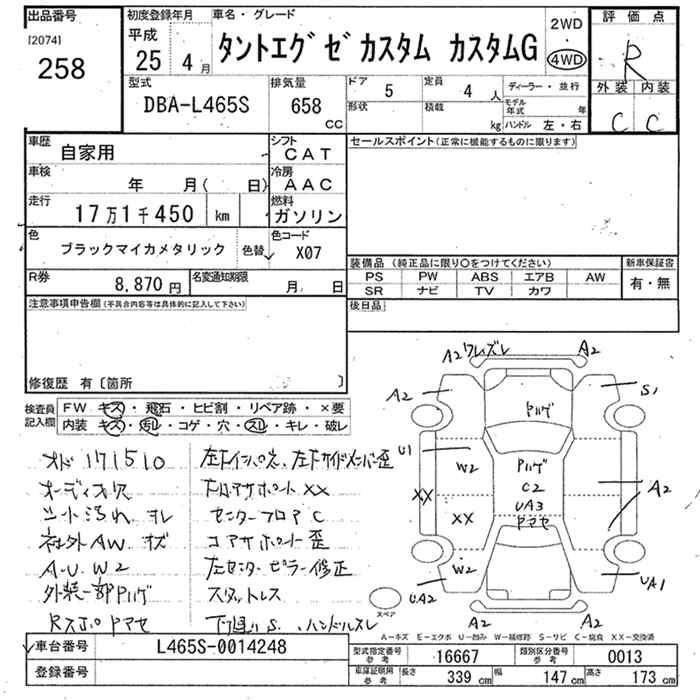 出品番号
[2074]
258
初度登録年月
平成
25年 4月
車名・グレード
タントエグゼカスタム カスタムG
2WD
・
4WD
評価点
R
外装 内装
C C
型式
DBA-L465S
排気量
658 CC
ドア 5
定員 4人
形状
積載 kg
ディーラー・並行
モデル年式 年
ハンドル 左・右
車歴
自家用
シフト
CAT
車検
年 月( 日)
冷房
AAC
走行
17万1千450 km
燃料
ガソリン
色
ブラックマイカメタリック
色替
色コード
X07
R券
8,870円
名変通知期限
月 日
セールスポイント(正常に機能するものに限ります)
装備品 (純正品に限り〇をつけてください)
PS PW ABS エアB AW
SR ナビ TV カワ
新車保証書
有・無
後日品
注意事項申告欄(不具合内容等は具体的に記入して下さい)
修復歴 有〔箇所 〕
検査員記入欄
FW キズ・飛石・ヒビ割・リペア跡・×要
内装 キズ・汚レ・コゲ・穴・スレ・キレ・破レ
オド 171510
オーディオ欠
シート汚れ スレ
社外AW キズ
A-U W2
外装一部Pハゲ
左センターピラー修正
センターフロア C
コアサポート歪
スタッドレス
下廻りS、ハンドルスレ
A2 ワレズレ A2
A2 S1
Pハゲ
U1
W2
Pハゲ
C2
UA3
XX
XX
A2
W2
UA2
UA1
A2 A2
スペア
A-キズ E-エクボ U-凹み W-補修跡 S-サビ C-腐食 XX-交換済
車台番号 L465S-0014248
登録番号
型式指定番号 参考 16667
類別区分番号 参考 0013
車庫証明用 参考
長さ 339cm
幅 147cm
高さ 173cm